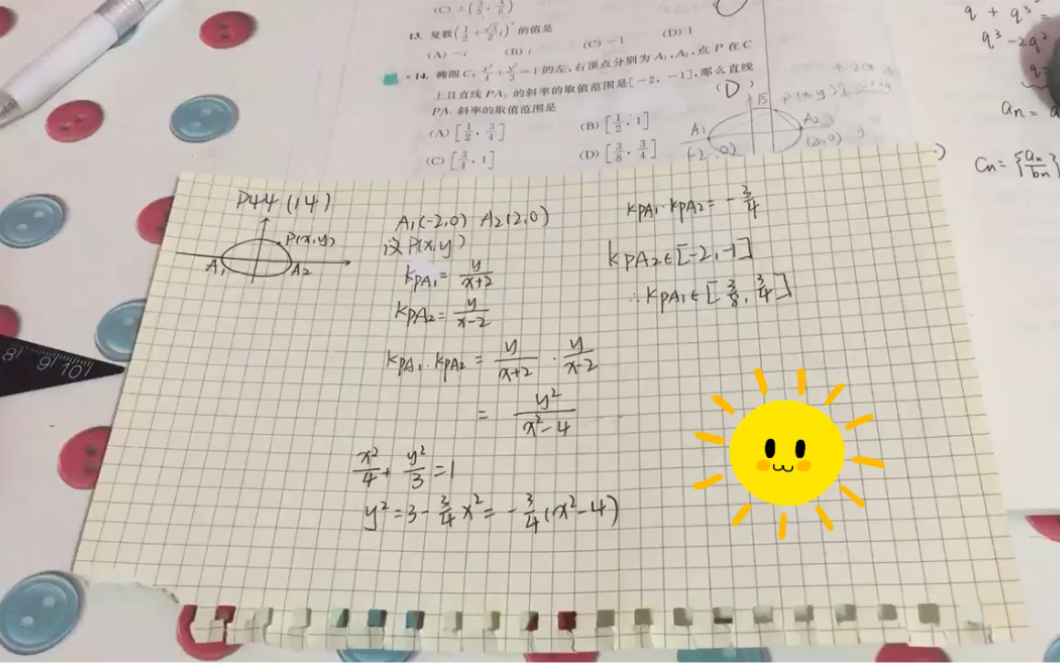 (C) ± (3/5, 4/5)
13. 复数(1/2 + √3/2 i)³的值是
(A) -i (B) i (C) -1 (D) 1
14. 椭圆 C: x²/4 + y²/3 = 1 的左、右顶点分别为 A₁, A₂, 点 P 在 C
上且直线 PA₂ 的斜率的取值范围是[-2, -1], 那么直线
PA₁ 斜率的取值范围是
(D)
(A) [1/2, 3/4] (B) [1/2, 1]
(C) [3/4, 1] (D) [3/8, 3/4]
P(x,y)
A₁ A₂
(-2,0) (2,0)
q + q³ =
q³ - 2q²
aₙ =
Cₙ = {aₙ/bₙ}
P44 (14)
P(x,y)
A₁ A₂
A₁(-2,0) A₂(2,0)
设P(x,y)
kPA₁ = y/(x+2)
kPA₂ = y/(x-2)
kPA₁ · kPA₂ = y/(x+2) · y/(x-2)
= y²/(x²-4)
x²/4 + y²/3 = 1
y² = 3 - 3/4 x² = -3/4 (x²-4)
kPA₁ · kPA₂ = -3/4
kPA₂ ∈ [-2, -1]
∴ kPA₁ ∈ [3/8, 3/4]
8 9 10